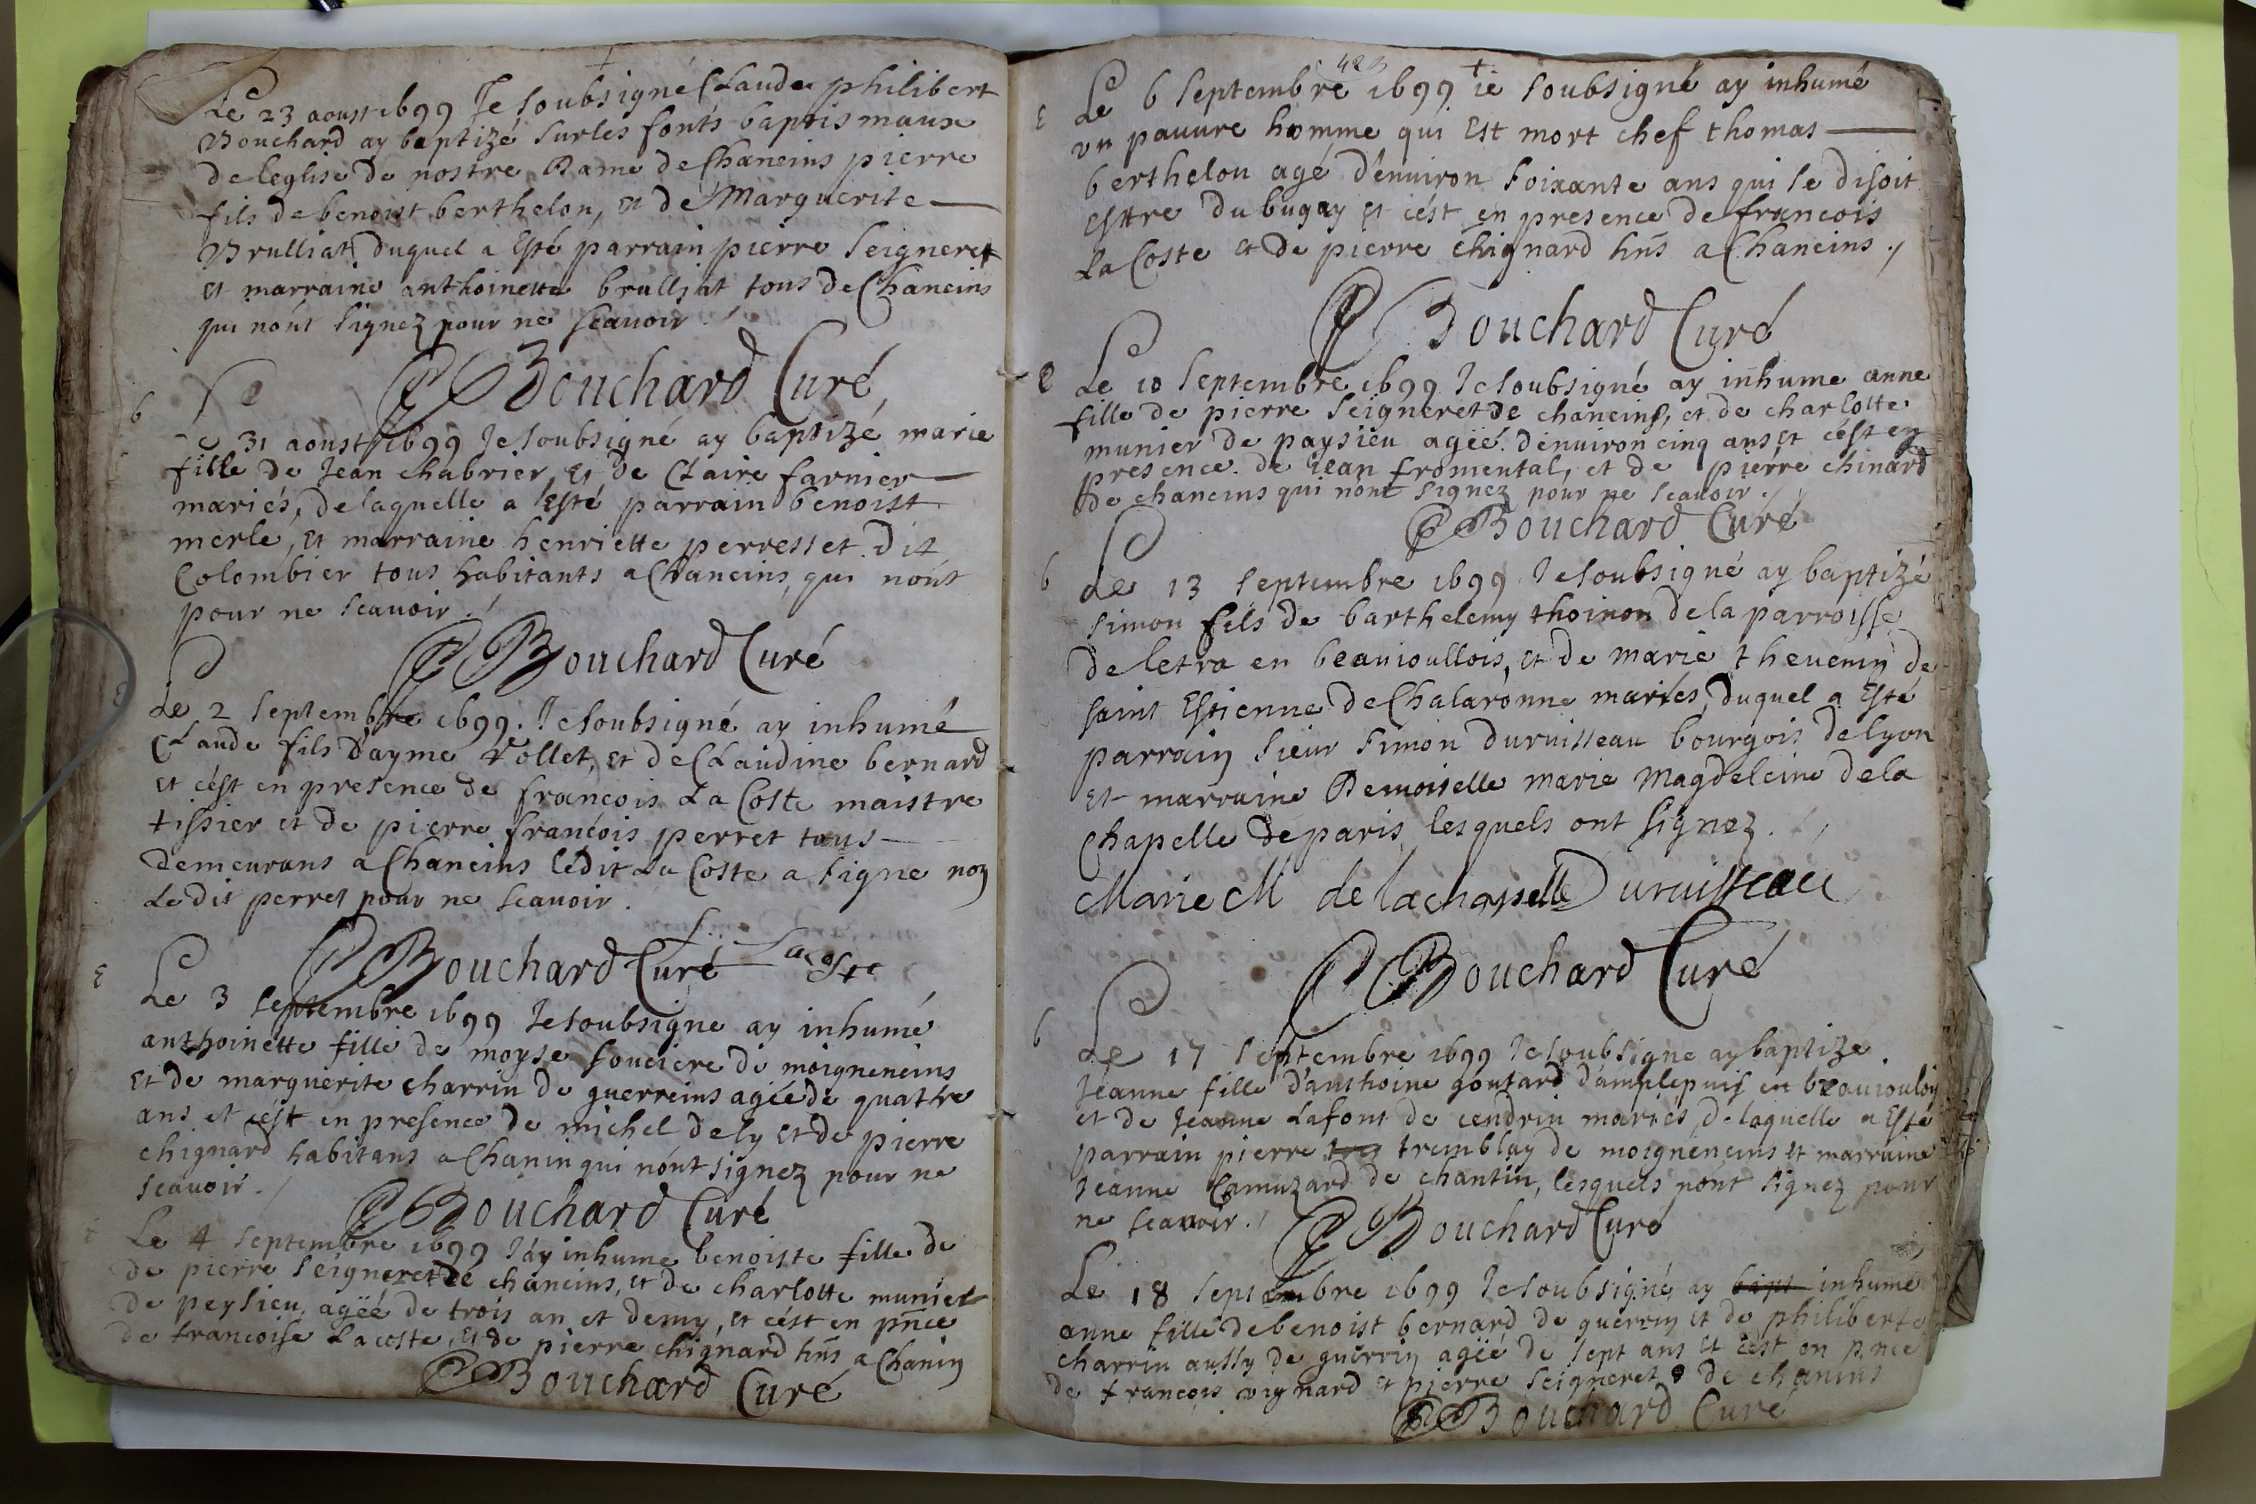 Le 23 aoust 1699 Je soubsigné Claude philibert
Bouchard ay baptizé sur les fonts baptismaux
de leglise de nostre Dame de Chaneins pierre
fils de benoist berthelon, et de Marguerite
Brulliat duquel a esté parrain pierre Seigneret
et marraine anthoinette brulliat tous de Chaneins
qui n'ont signez pour ne scauoir
Bouchard Curé
b
Le 31 aoust 1699 Je soubsigné ay baptizé marie
fille de Jean chabrier, et de Claire farnier
mariés, de laquelle a esté parrain benoist
merle, et marraine henriette perresset dit
Colombier tous habitants a Chaneins, qui n'ont
pour ne scauoir ./
Bouchard Curé
Le 2 septembre 1699. Je soubsigné ay inhumé
Claude fils d'ayme vollet, et de Claudine bernard
et c'est en presence de francois La Coste maistre
tissier et de pierre francois perret tous
demeurans a Chaneins ledit La Coste a signe non
Ledit perret pour ne scauoir.
Bouchard Curé Lacoste
E
Le 3 septembre 1699 Je soubsigne ay inhumé
anthoinette fille de moyse souciere de moigneneins
et de marguerite charrin de guerreins agée de quattre
ans et c'est en presence de michel dely et de pierre
chignard habitans a Chanin qui n'ont signez pour ne
scauoir ./
Bouchard Curé
Le 4 septembre 1699 J'ay inhumé benoiste fille de
de pierre seigneret de chaneins, et de charlotte munier
de peysieu, agëé de trois an et demy, et c'est en pnce
de francoise Lacoste, et de pierre chignard hns a Chanin
Bouchard Curé
423
E
Le 6 septembre 1699 ie soubsigné ay inhumé
vn pauure homme qui est mort chef thomas
berthelon agé d'enuiron soixante ans qui se disoit
esttre du bugay et c'est en presence de francois
La Coste et de pierre chignard hns a Chaneins ./
Bouchard Curé
E
Le 10 septembre 1699 Je soubsigné ay inhume anne
fille de pierre seigneret de chaneins, et de charlotte
munier de paysieu agëé d'enuiron cinq ans et c'est en
presence de iean fromental, et de pierre chinard
de chaneins qui n'ont signez pour ne scauoir.
Bouchard Curé
b
Le 13 septembre 1699 Je soubsigné ay baptizé
simon fils de barthelemy thoinon de la parroisse
de letra en beauioullois, et de marie thevenin de
saint Estienne de Chalaronne mariés, duquel a esté
parrain sieur simon duruisseau bourgois de lyon
et marraine Demoiselle marie Magdeleine de la
Chapelle de paris lesquels ont signez.
Marie M de la chapelle Duruisseau
Bouchard Curé
b
Le 17 septembre 1699 Je soubsigne ay baptizé
Jeanne fille d'anthoine goutard d'amplepuis en beauioulois
et de Jeanne Lafont de cendrin mariés, de laquelle a esté
parrain pierre tremblay de moigneneins et marraine
Jeanne Camuzard de chantin, lesquels n'ont signez pour
ne scauoir ./
Bouchard Curé
Le 18 septembre 1699 Je soubsigné ay bapt inhumé
anne fille de benoist bernard de guerrin et de philiberte
charrin aussy de guerrin agéé de sept ans et c'est en pnce
de francois vignard et pierre seigneret de chanins
Bouchard Curé